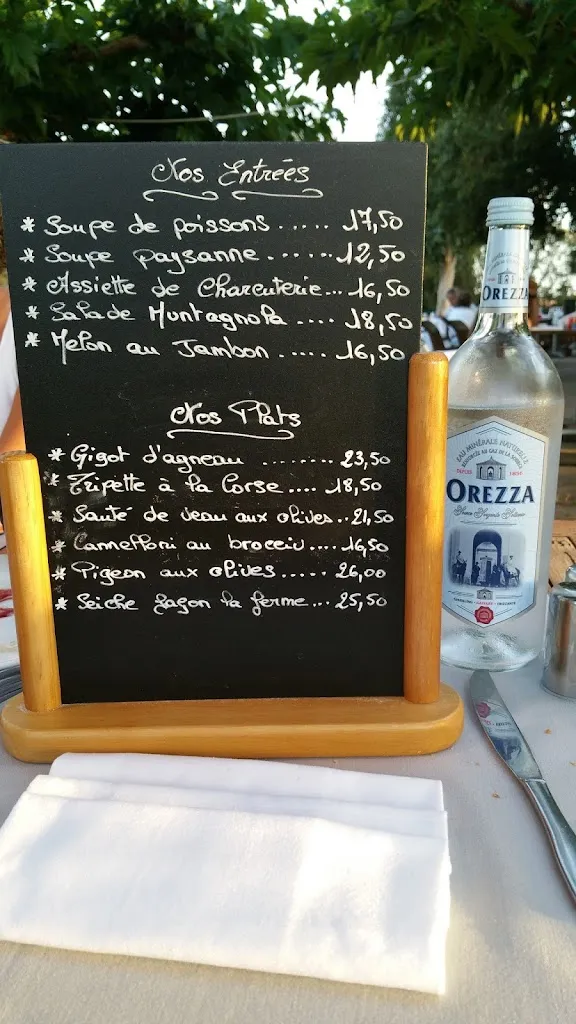 Nos Entrées
* Soupe de poissons...... 17,50
* Soupe paysanne....... 12,50
* Assiette de Charcuterie... 16,50
* Salade Muntagnola .... 18,50
* Melon au Jambon..... 16,50
Nos Plats
* Gigot d'agneau ........ 23,50
* Tripette à la Corse.... 18,50
* Sauté de veau aux olives.. 21,50
* Cannelloni au brocciu.... 16,50
* Pigeon aux olives..... 26,00
* Seiche façon la ferme... 25,50
OREZZA
EAU MINÉRALE NATURELLE
RENFORCÉE AU GAZ DE LA SOURCE
DEPUIS
OREZZA